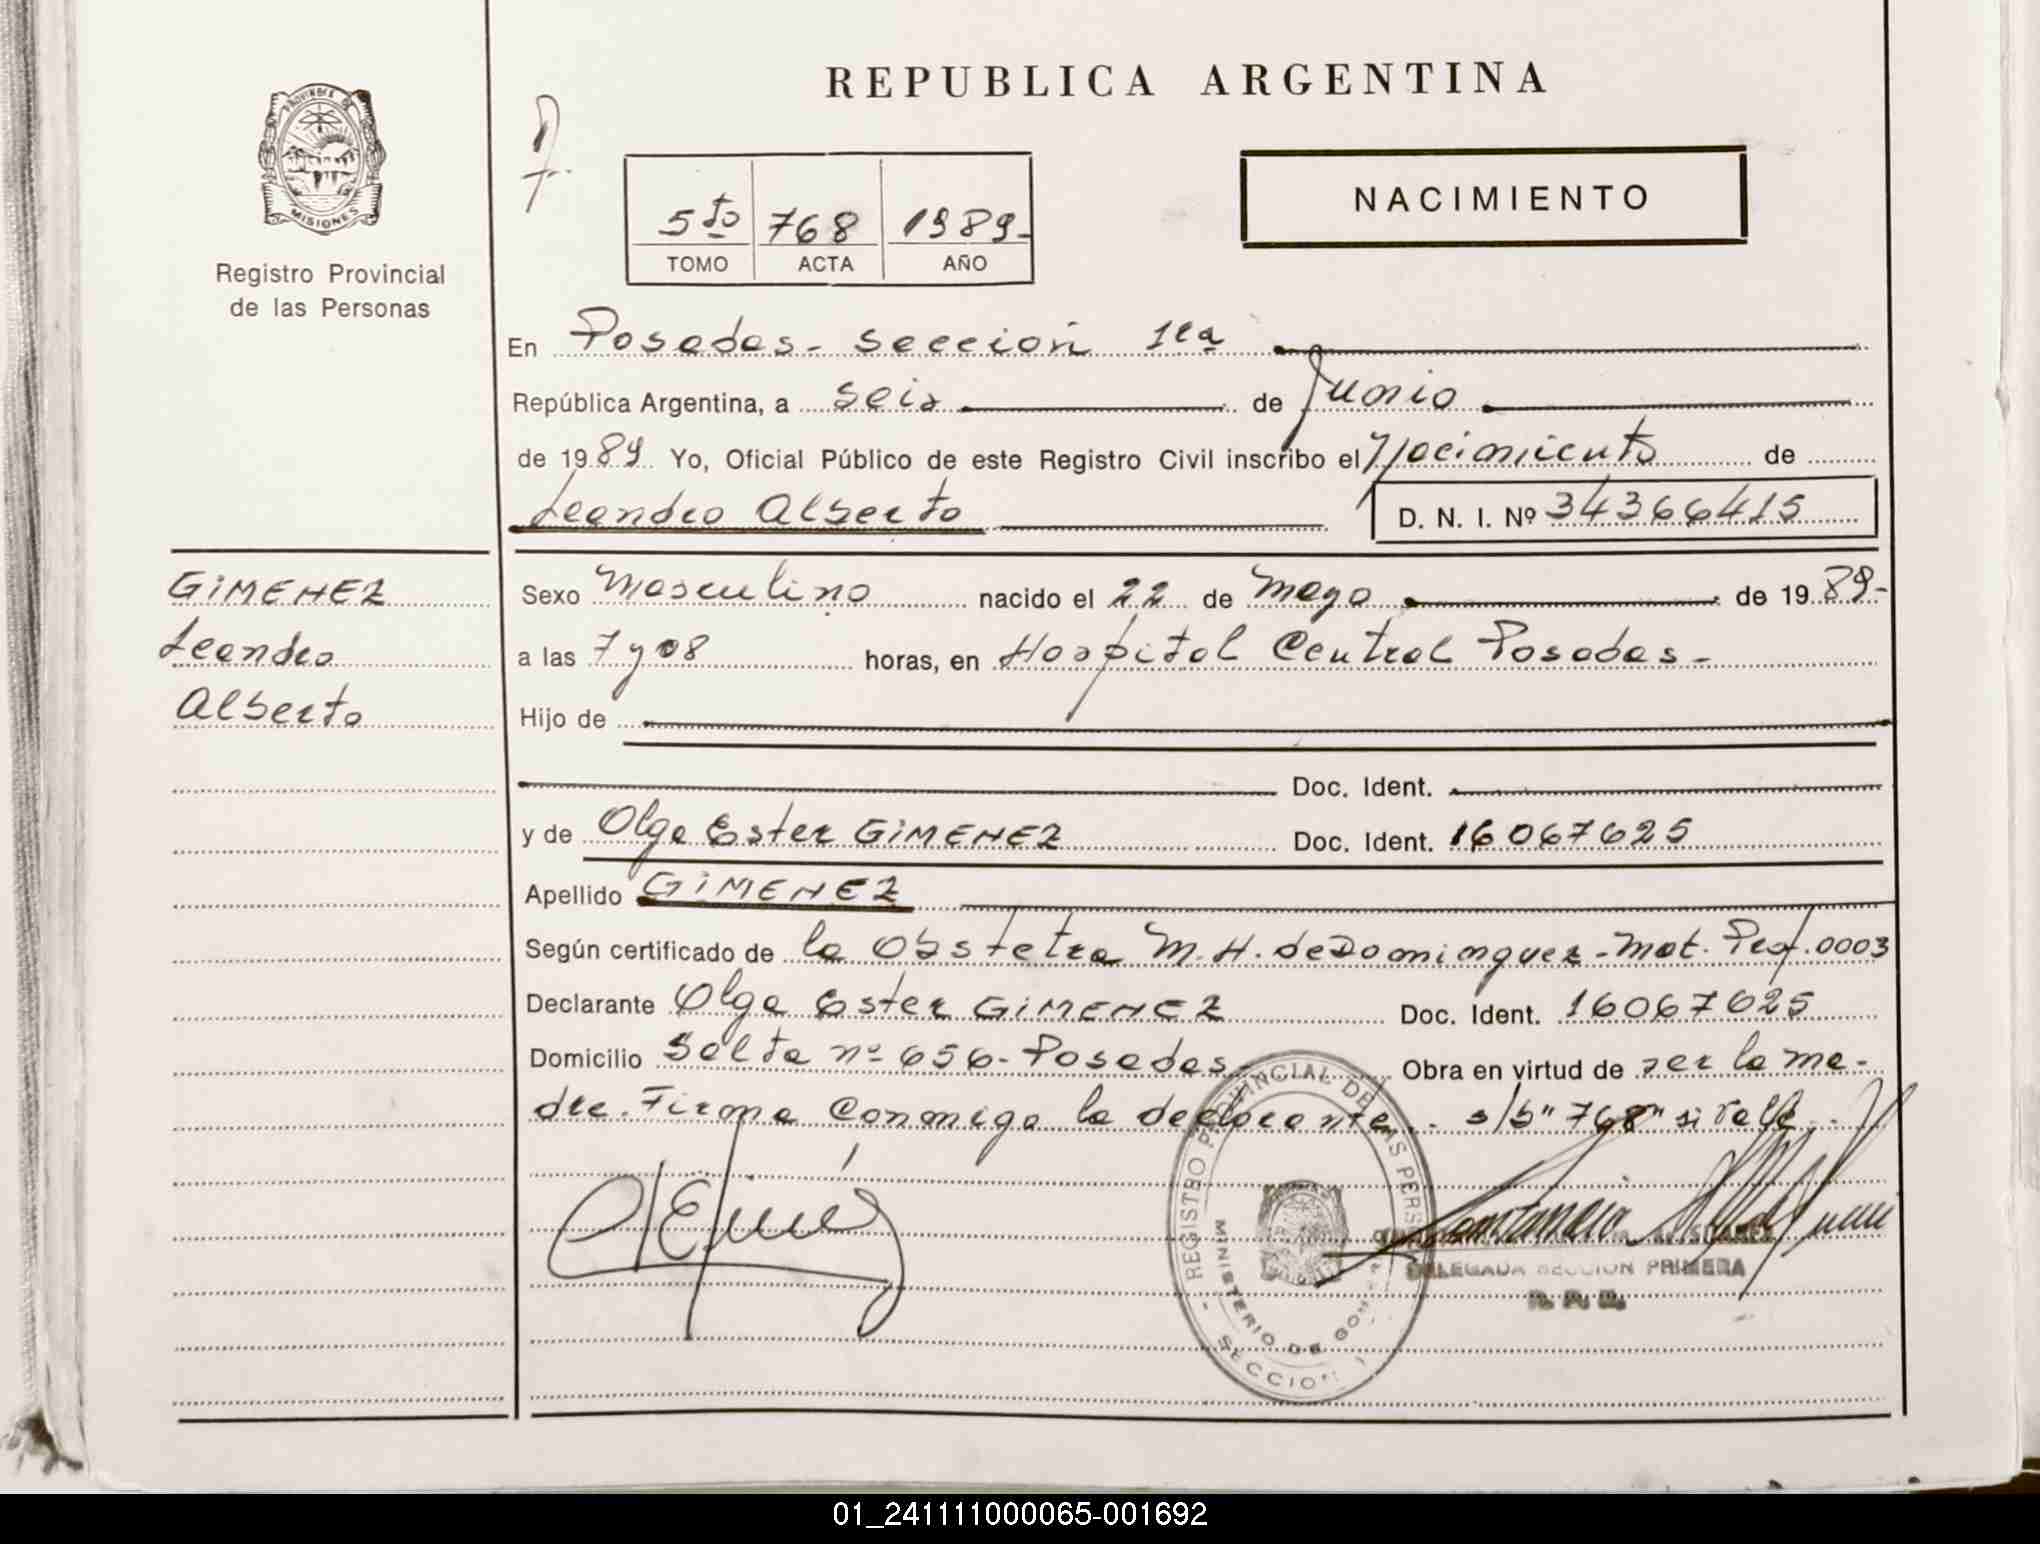 REPUBLICA ARGENTINA
PROVINCIA DE
MISIONES
Registro Provincial
de las Personas
5to 768 1989-
TOMO ACTA AÑO
NACIMIENTO
En Posadas- sección 1ra
República Argentina, a seis de Junio
de 1989 Yo, Oficial Público de este Registro Civil inscribo el Nacimiento de
Leandro Alberto D. N. I. Nº 34366415
GiMENEZ
Leandro
Alberto
Sexo Masculino nacido el 22 de Mayo de 1989-
a las 7 y 08 horas, en Hospital Central Posadas-
Hijo de
Doc. Ident.
y de Olga Ester GiMENEZ Doc. Ident. 16067625
Apellido GiMENEZ
Según certificado de la Obstetra M.H. de Dominguez-Mat. Prof. 0003
Declarante Olga Ester GiMENEZ Doc. Ident. 16067625
Domicilio Salta nº 656-Posadas- Obra en virtud de ser la ma-
dre. Firma Conmigo la declarante.. s/b "768" si vale..
REGISTRO PROVINCIAL DE LAS PERS
MINISTERIO DE GO
SECCION 1
DELEGADA SECCION PRIMERA
R. P. P.
01_241111000065-001692